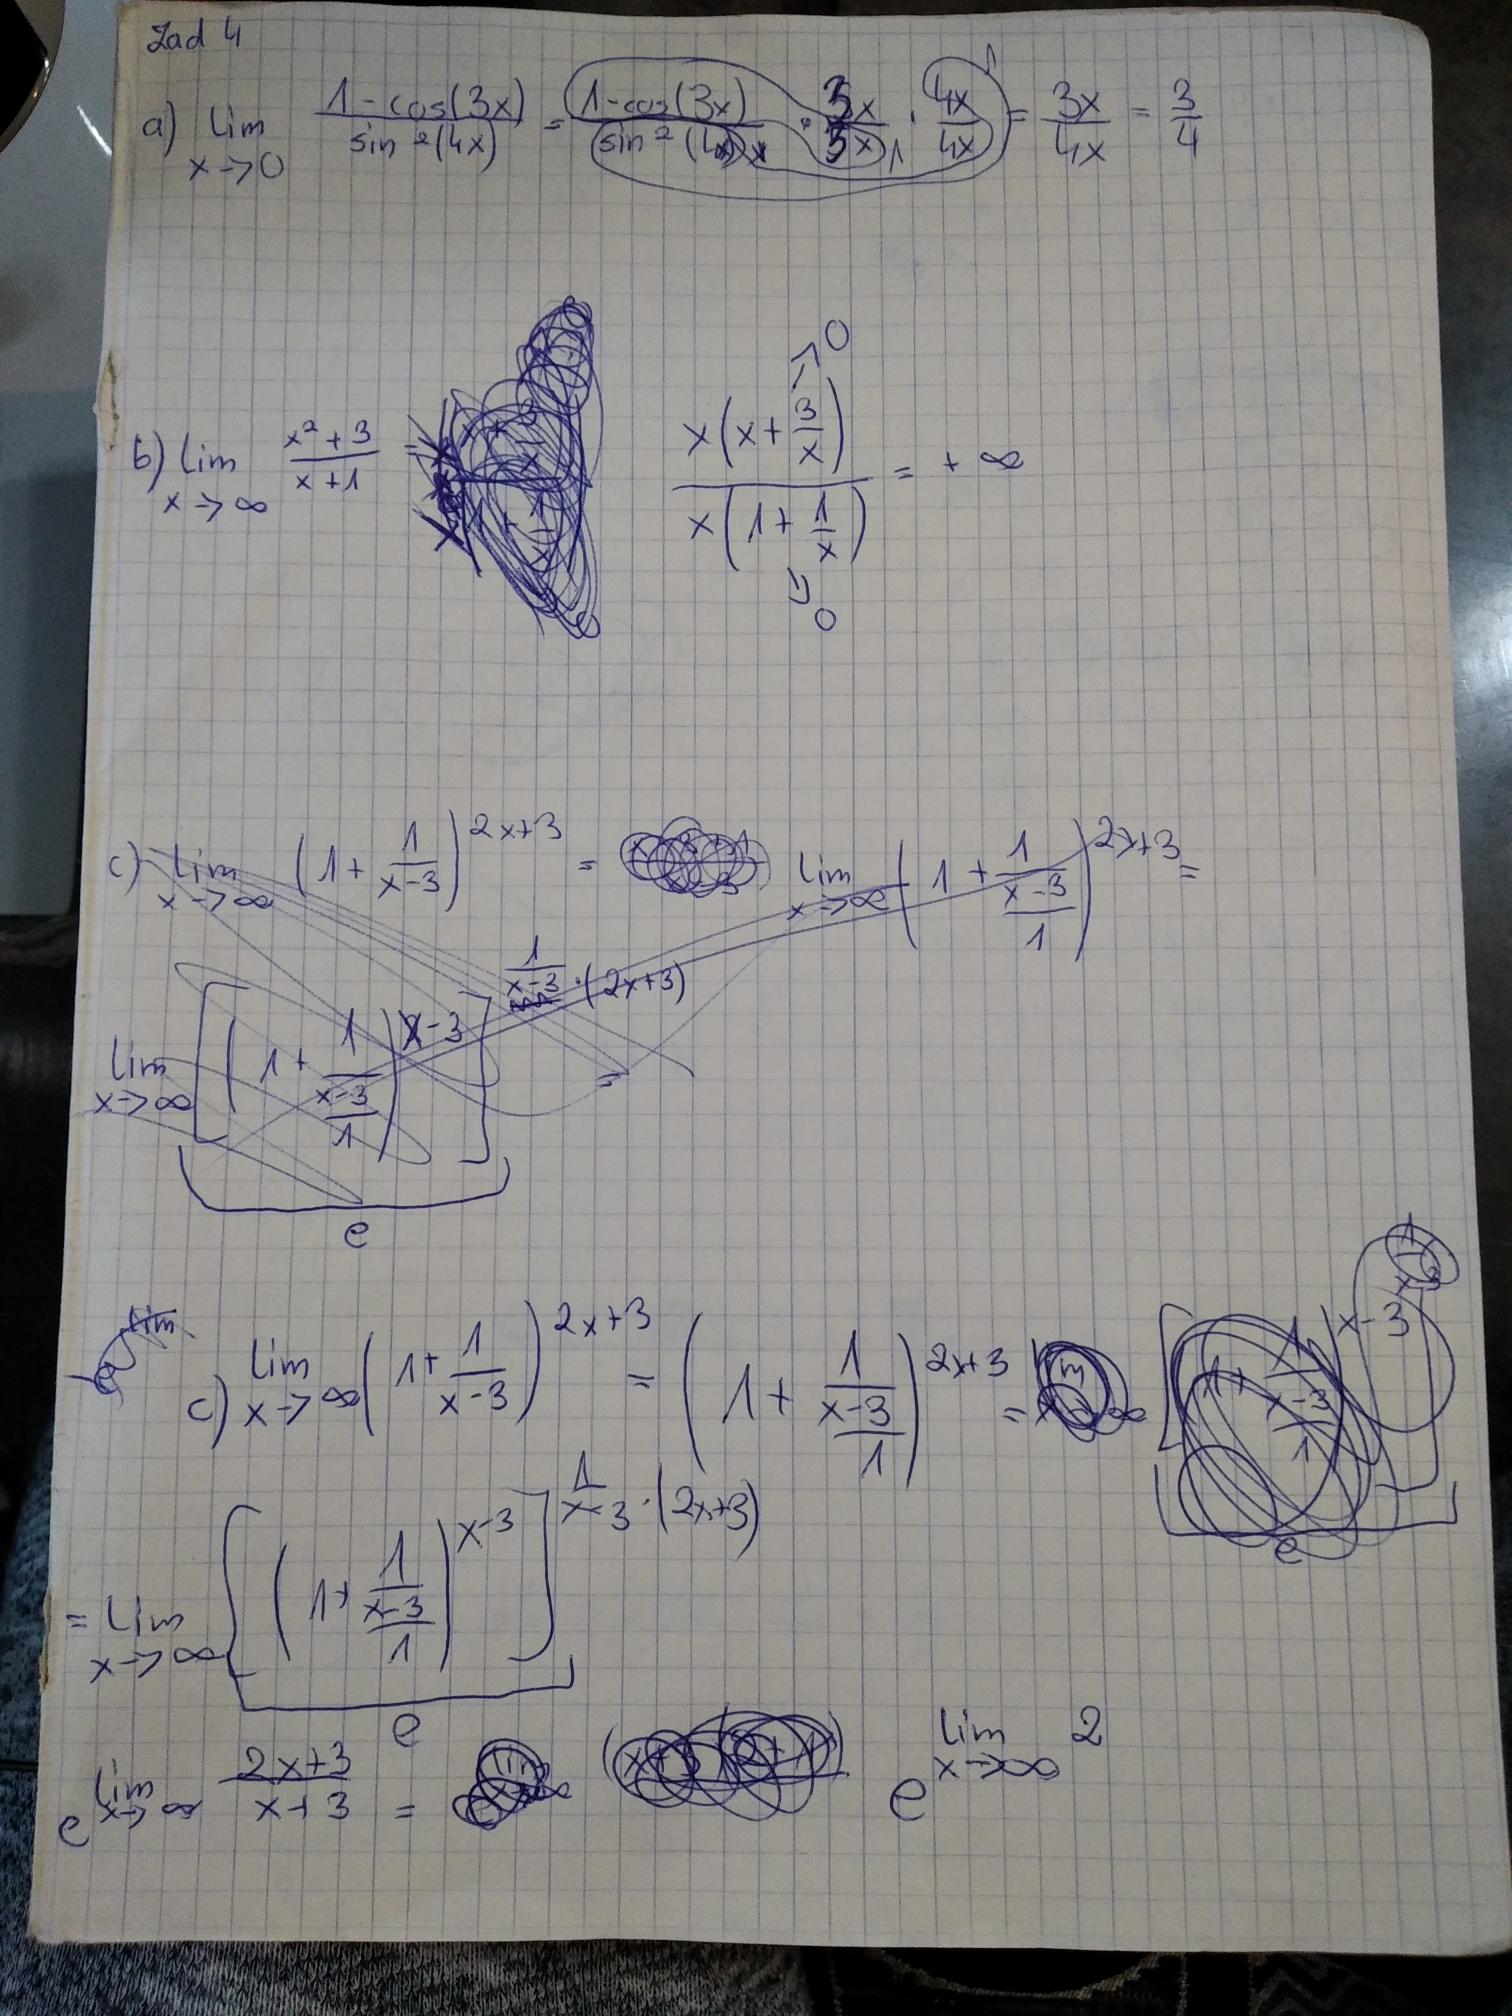 Zad 4
a) lim x→0 (1-cos(3x))/(sin²(4x)) = (1-cos(3x))/(sin²(4x)) · 3x/3x · 4x/4x = 3x/4x = 3/4
b) lim x→∞ (x²+3)/(x+1) = x(x+3/x)/x(1+1/x) = +∞
→0
→0
c) lim x→∞ (1+1/(x-3))^(2x+3) = lim x→∞ (1+1/((x-3)/1))^(2x+3) =
lim x→∞ [(1+1/((x-3)/1))^(x-3)]^(1/(x-3)·(2x+3)) =
e
lim
c) lim x→∞ (1+1/(x-3))^(2x+3) = (1+1/((x-3)/1))^(2x+3) =
e
= lim x→∞ [(1+1/((x-3)/1))^(x-3)]^(1/(x-3)·(2x+3))
e
e^(lim x→∞ (2x+3)/(x+3)) = e^(lim x→∞ 2)